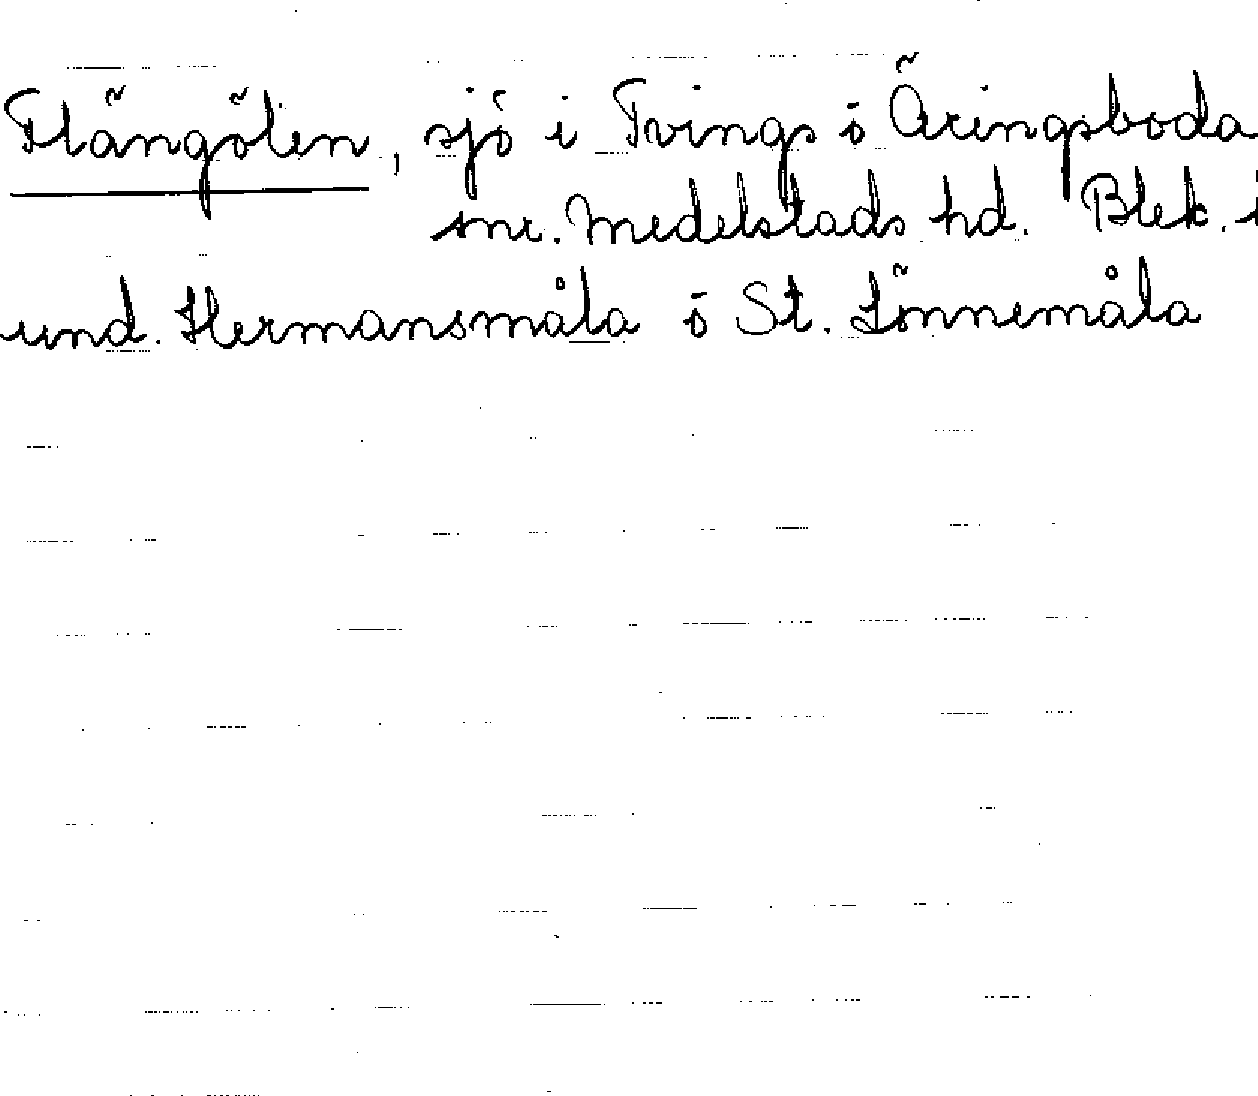 Flängölen, sjö i Tvings o Äringsboda
snr. Medelstads hd. Blek. i
und. Hermansmåla o St. Lönnemåla